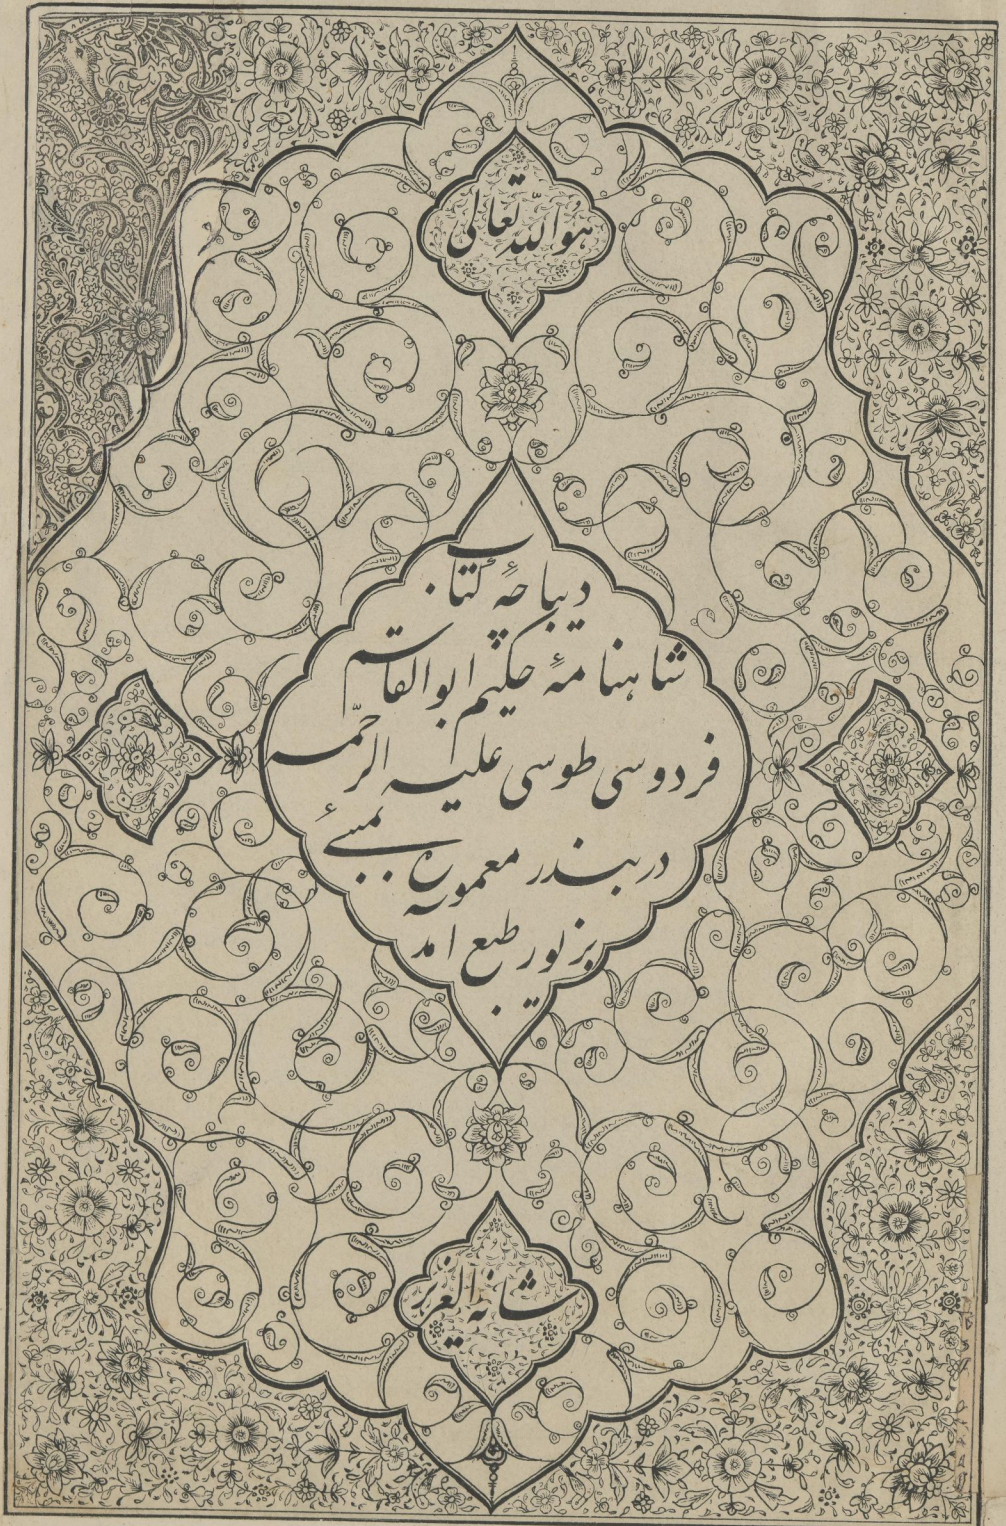 هو الله تعالی
دیباچهٔ کتاب
شاهنامهٔ حکیم ابوالقاسم
فردوسی طوسی علیه الرحمه
در بندر معموره بمبئے
بزیور طبع امد
شانه العزیز